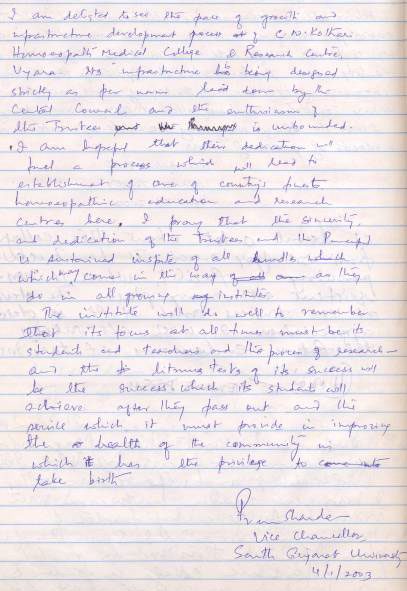 I am delighted to see the pace of growth and
infrastructure development process at C.N. Kothari
Homoeopathic Medical College & Research Centre,
Vyara. Its infrastructure is being designed
strictly as per norms laid down by the
Central Council and the enthusiasm of
the Trustees and the is unbounded.
I am hopeful that their dedication will
fuel a process which will lead to
establishment of one of country's finest
homoeopathic education and research
centres here. I pray that the sincerity
and dedication of the Trustees and the Principal
is sustained inspite of all hurdles which
which may come in the way of all as they
do in all growing institutes
The institute will do well to remember
that its focus at all times must be its
students and teachers and the process of research –
and the litmus tests of its success will
be the success which its students will
achieve after they pass out and the
service which it must provide in improving
the health of the community in
which it has the privilege to
take birth
Vice Chancellor
South Gujarat University
4/1/2003